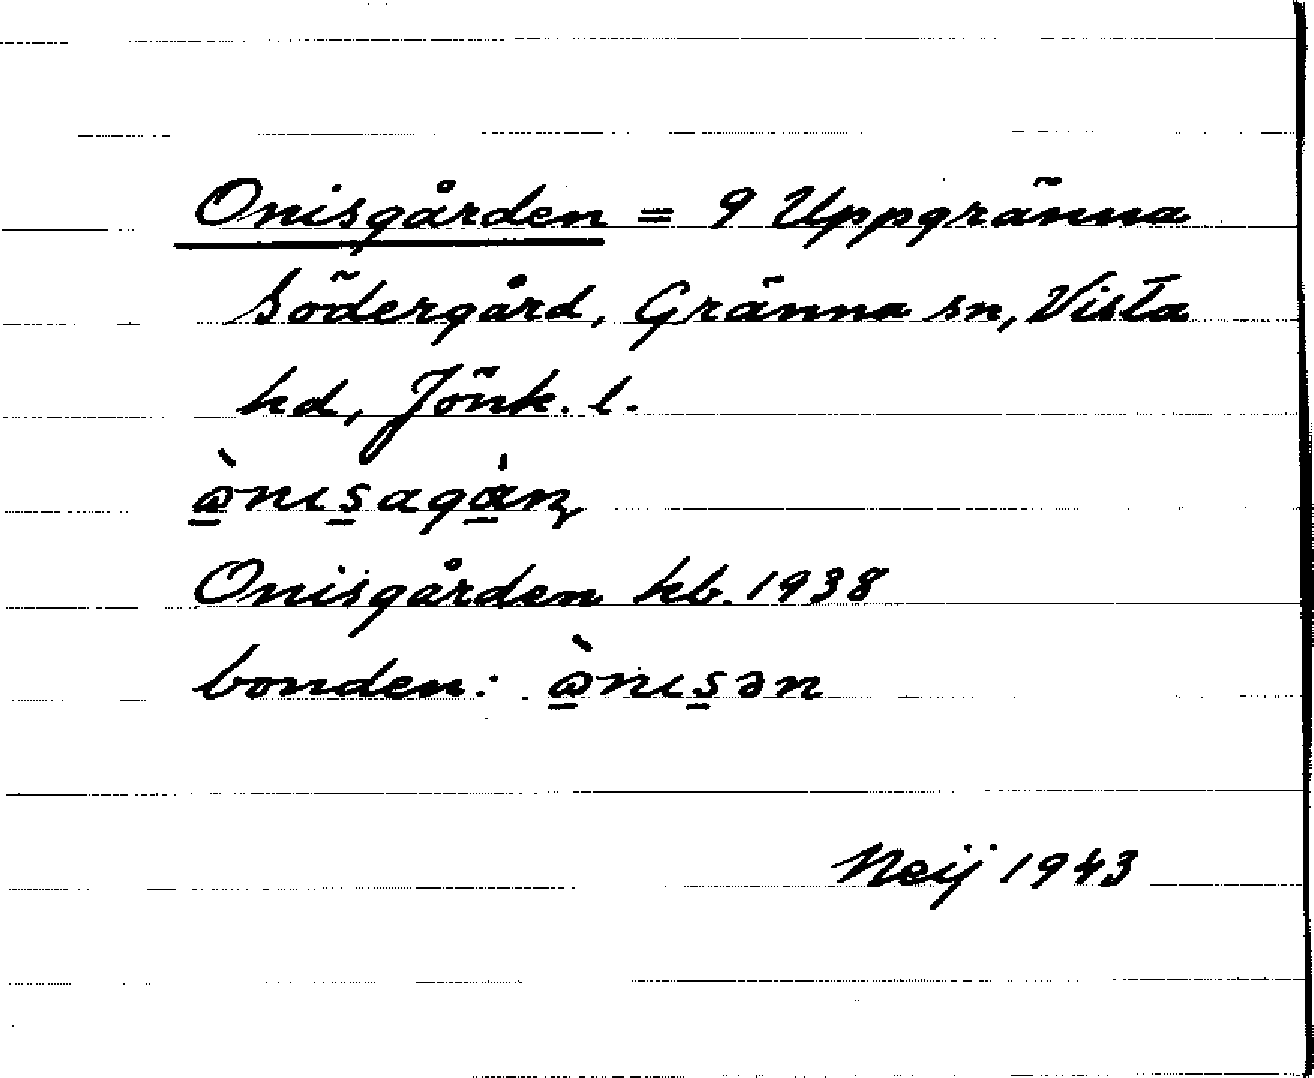 Onisgården = 9 Uppgränna
Södergård, Gränna sn, Vista
hd, Jönk. l.
Onisgården kb. 1938
bonden:
Neij 1943